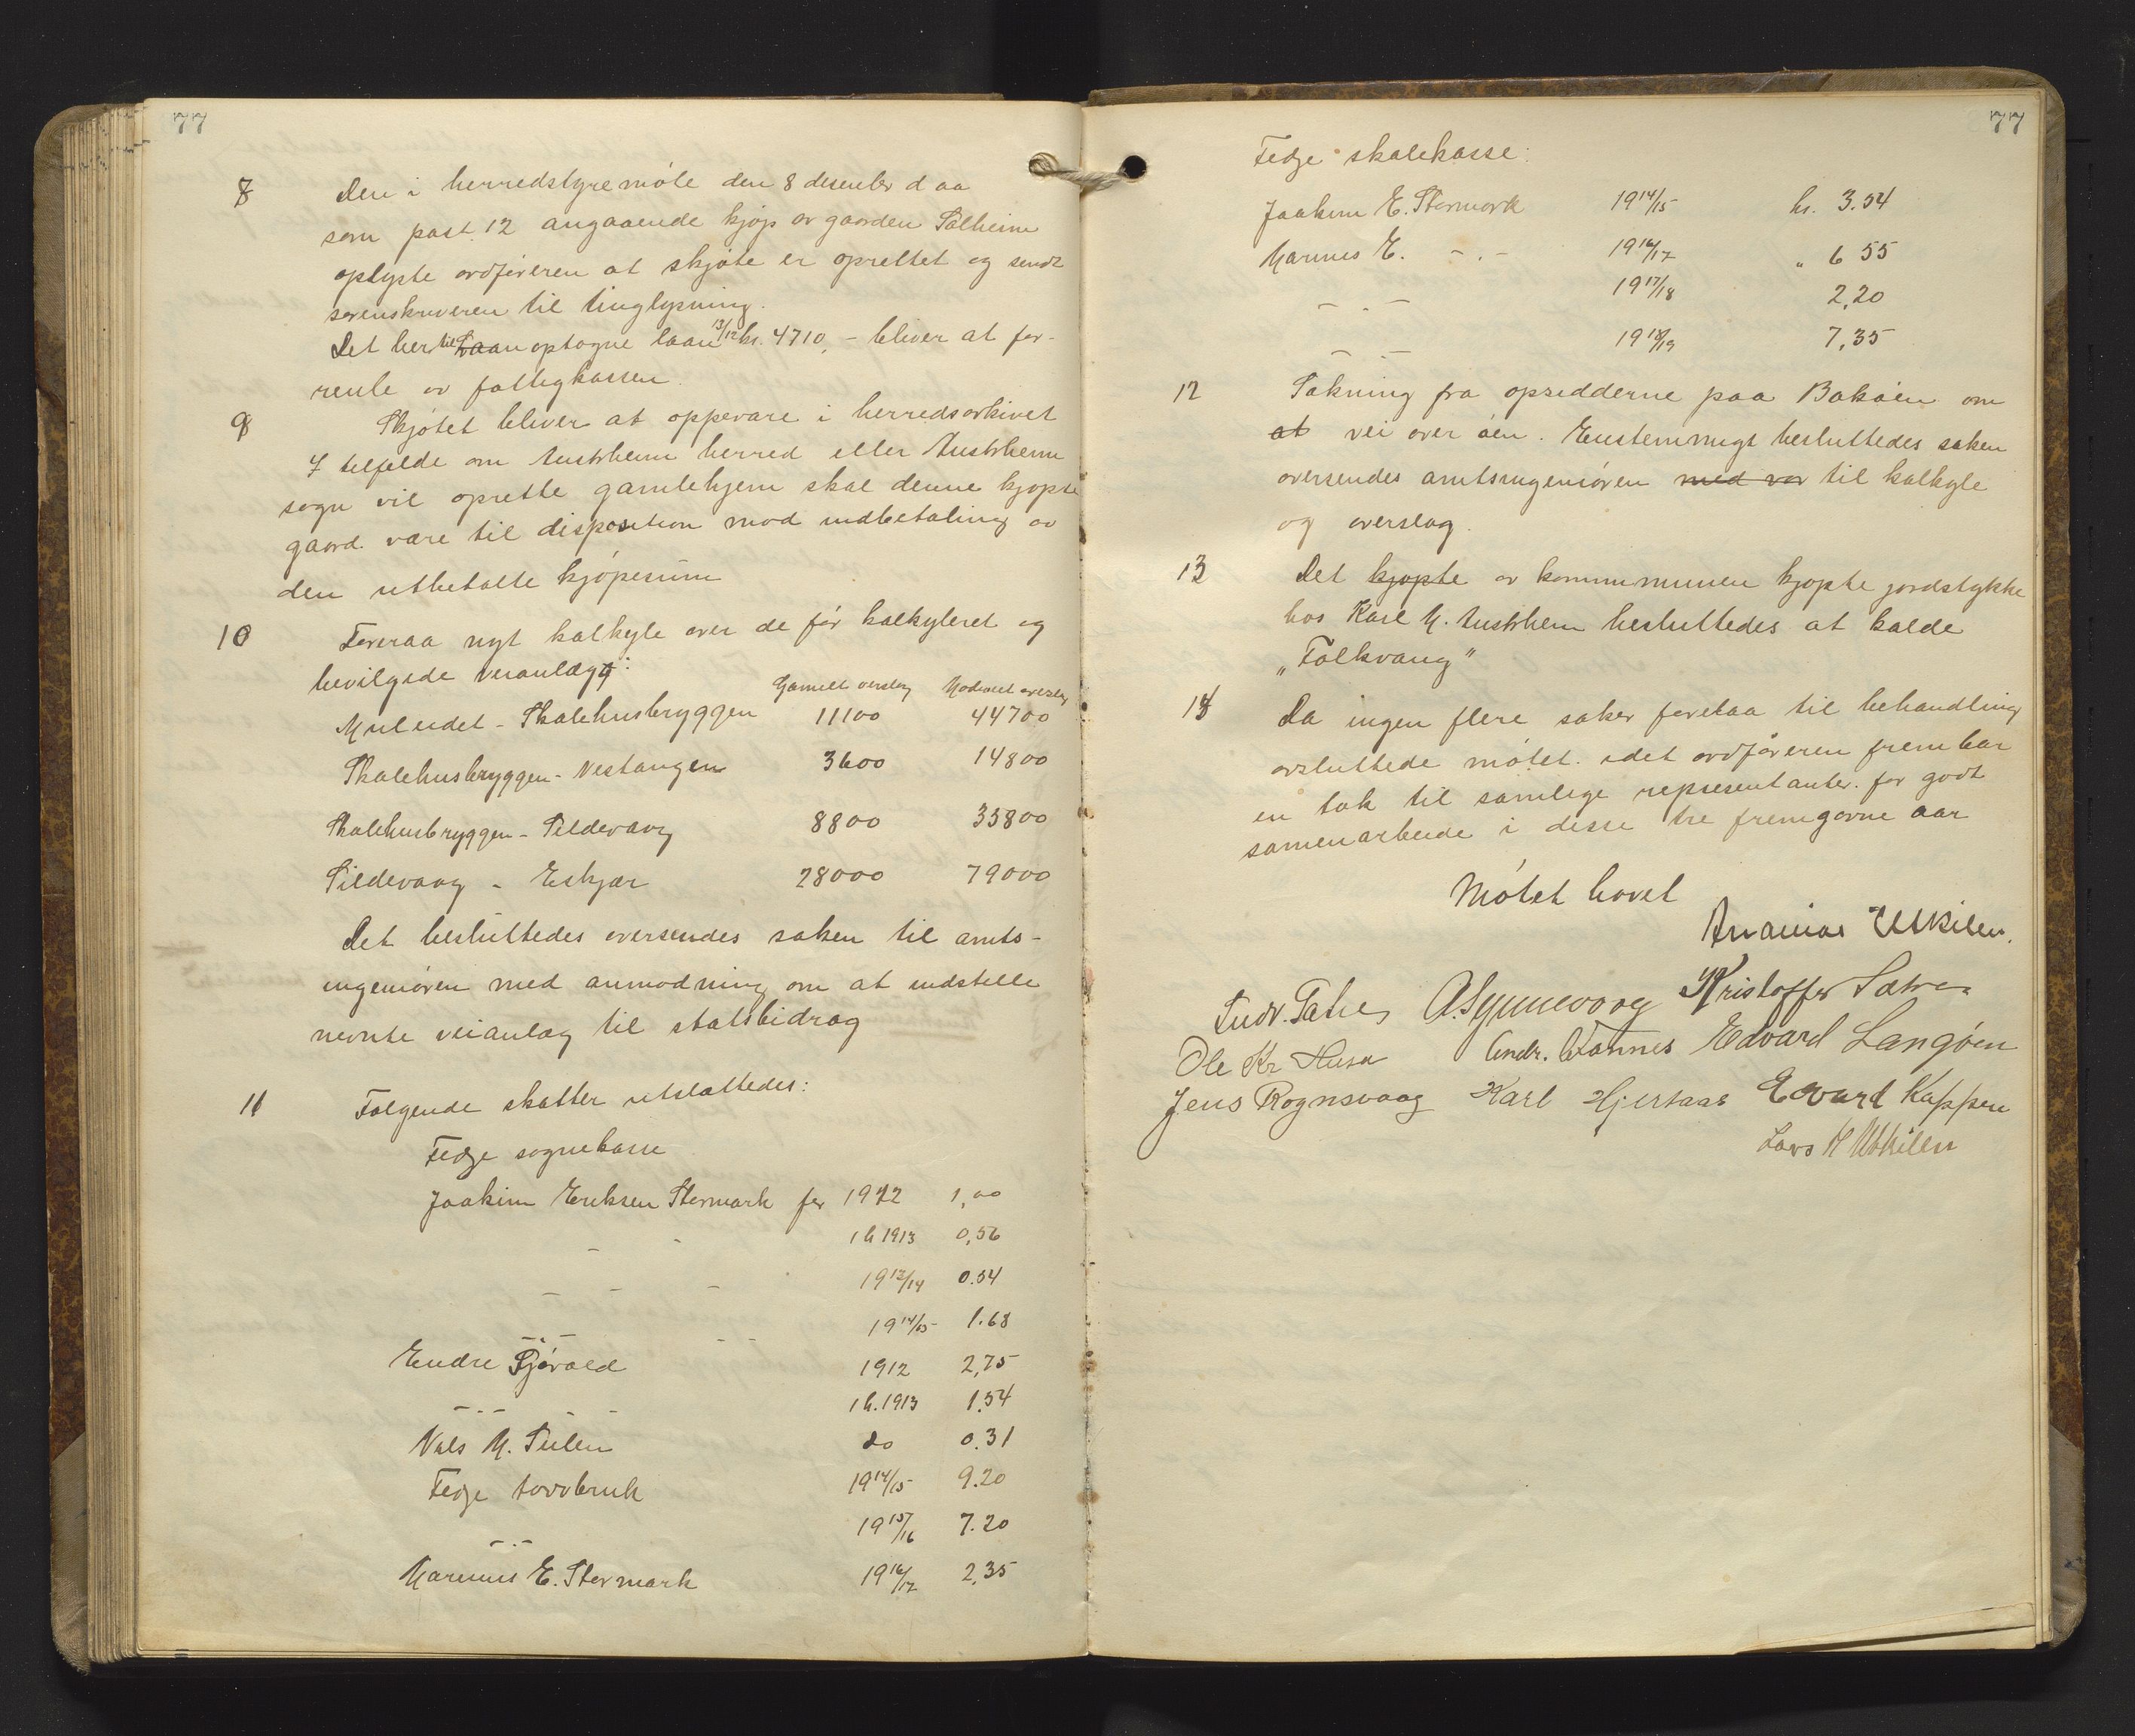 77
8 Den i herredstyremøte den 8 desember d aa
som post. 12 angaaende kjøp av gaarden Solheim
oplyste ordføreren at skjøte er oprettet og sendt
sorenskriveren til tinglysning.
Det hertil optagne laan 13/12 kr. 4710,- bliver at for-
rente av fattigkassen.
9 Skjøtet bliver at oppevare i herredsarkivet
I tilfelde om Austrheim herred eller Austrheim
sogn vil oprette gamlehjem skal denne kjøpte
gaard være til disposition mod indbetaling av
den utbetalte kjøpesum
10 Foreraa nyt kalkyle over de før kalkyleret og
bevilgede veianlægg:
Gamelt overslag Moderert overslag
Muleidet - Skolehusbryggen 11100 44700
Skolehusbryggen - Vestangen 3600 14800
Skolehusbryggen - Sildevaag 8800 35800
Sildevaag - Eskjær 28000 79000
Det besluttedes oversendes saken til amts-
ingeniøren med anmodning om at indstille
nevnte veianlæg til statsbidrag
11 Følgende skatter utslattedes:
Fedje sognekasse
Joakim Eriksen Stormark for 1912 1,00
- - 1 h 1913 0,56
- - - 1913/14 0.54
- . - - - 1914/15 1.68
Endre Gjøvold 1912 2,75
- . - - - 1 h. 1913 1.54
Nils M. Tulen do 0.31
Fedje torvbruk 1914/15 9.20
- . - 1915/16 7.20
Marinus E. Stormark 1916/17 2.35
77
Fedje skolekasse:
Joakim E. Stormark 1914/15 kr. 3.54
Marinus E. - . - 1916/17 " 6 55
- . - 1917/18 2,20
- - 1918/19 7,35
12 Søkning fra opsidderne paa Bakøen om
at vei over øen. Enstemmigt besluttedes saken
oversendes amtsingeniøren med vor til kalkyle
og overslag.
13 Det kjøpte av kommununen kjøpte jordstykke
hos Karl M. Austrheim besluttedes at kalde
„Folkvang"
14 Da ingen flere saker forelaa til behandling
avsluttede møtet. idet ordføreren frembar
en tak til samlige representanter. for godt
samenarbeide i disse tre fremgavne aar
Møtet hævet
Ananias Utkilen.
Ludv. Sætre A. Synnevaag Kristoffer Sætre
Ole Kr Husa Andr. Fonnes Edvard Langøen
Jens Rognsvaag Karl Hjertaas Edvard Kappen
Lars H Utkilen